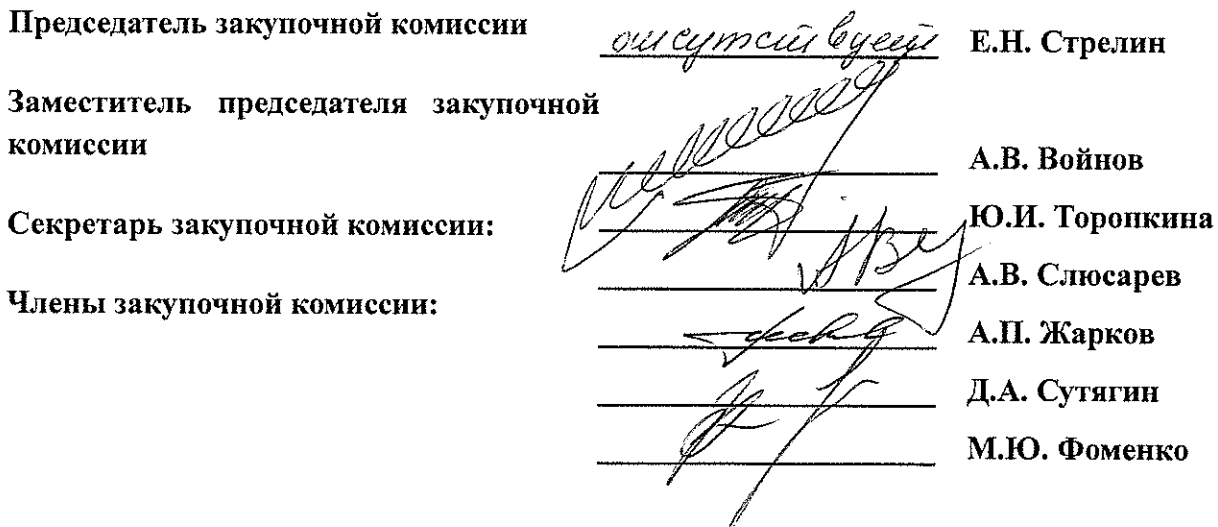 Председатель закупочной комиссии
отсутствует Е.Н. Стрелин
Заместитель председателя закупочной
комиссии
А.В. Войнов
Секретарь закупочной комиссии:
Ю.И. Торопкина
А.В. Слюсарев
Члены закупочной комиссии:
А.П. Жарков
Д.А. Сутягин
М.Ю. Фоменко